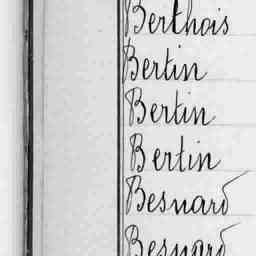 Berthois
Bertin
Bertin
Bertin
Besnard
Besnard